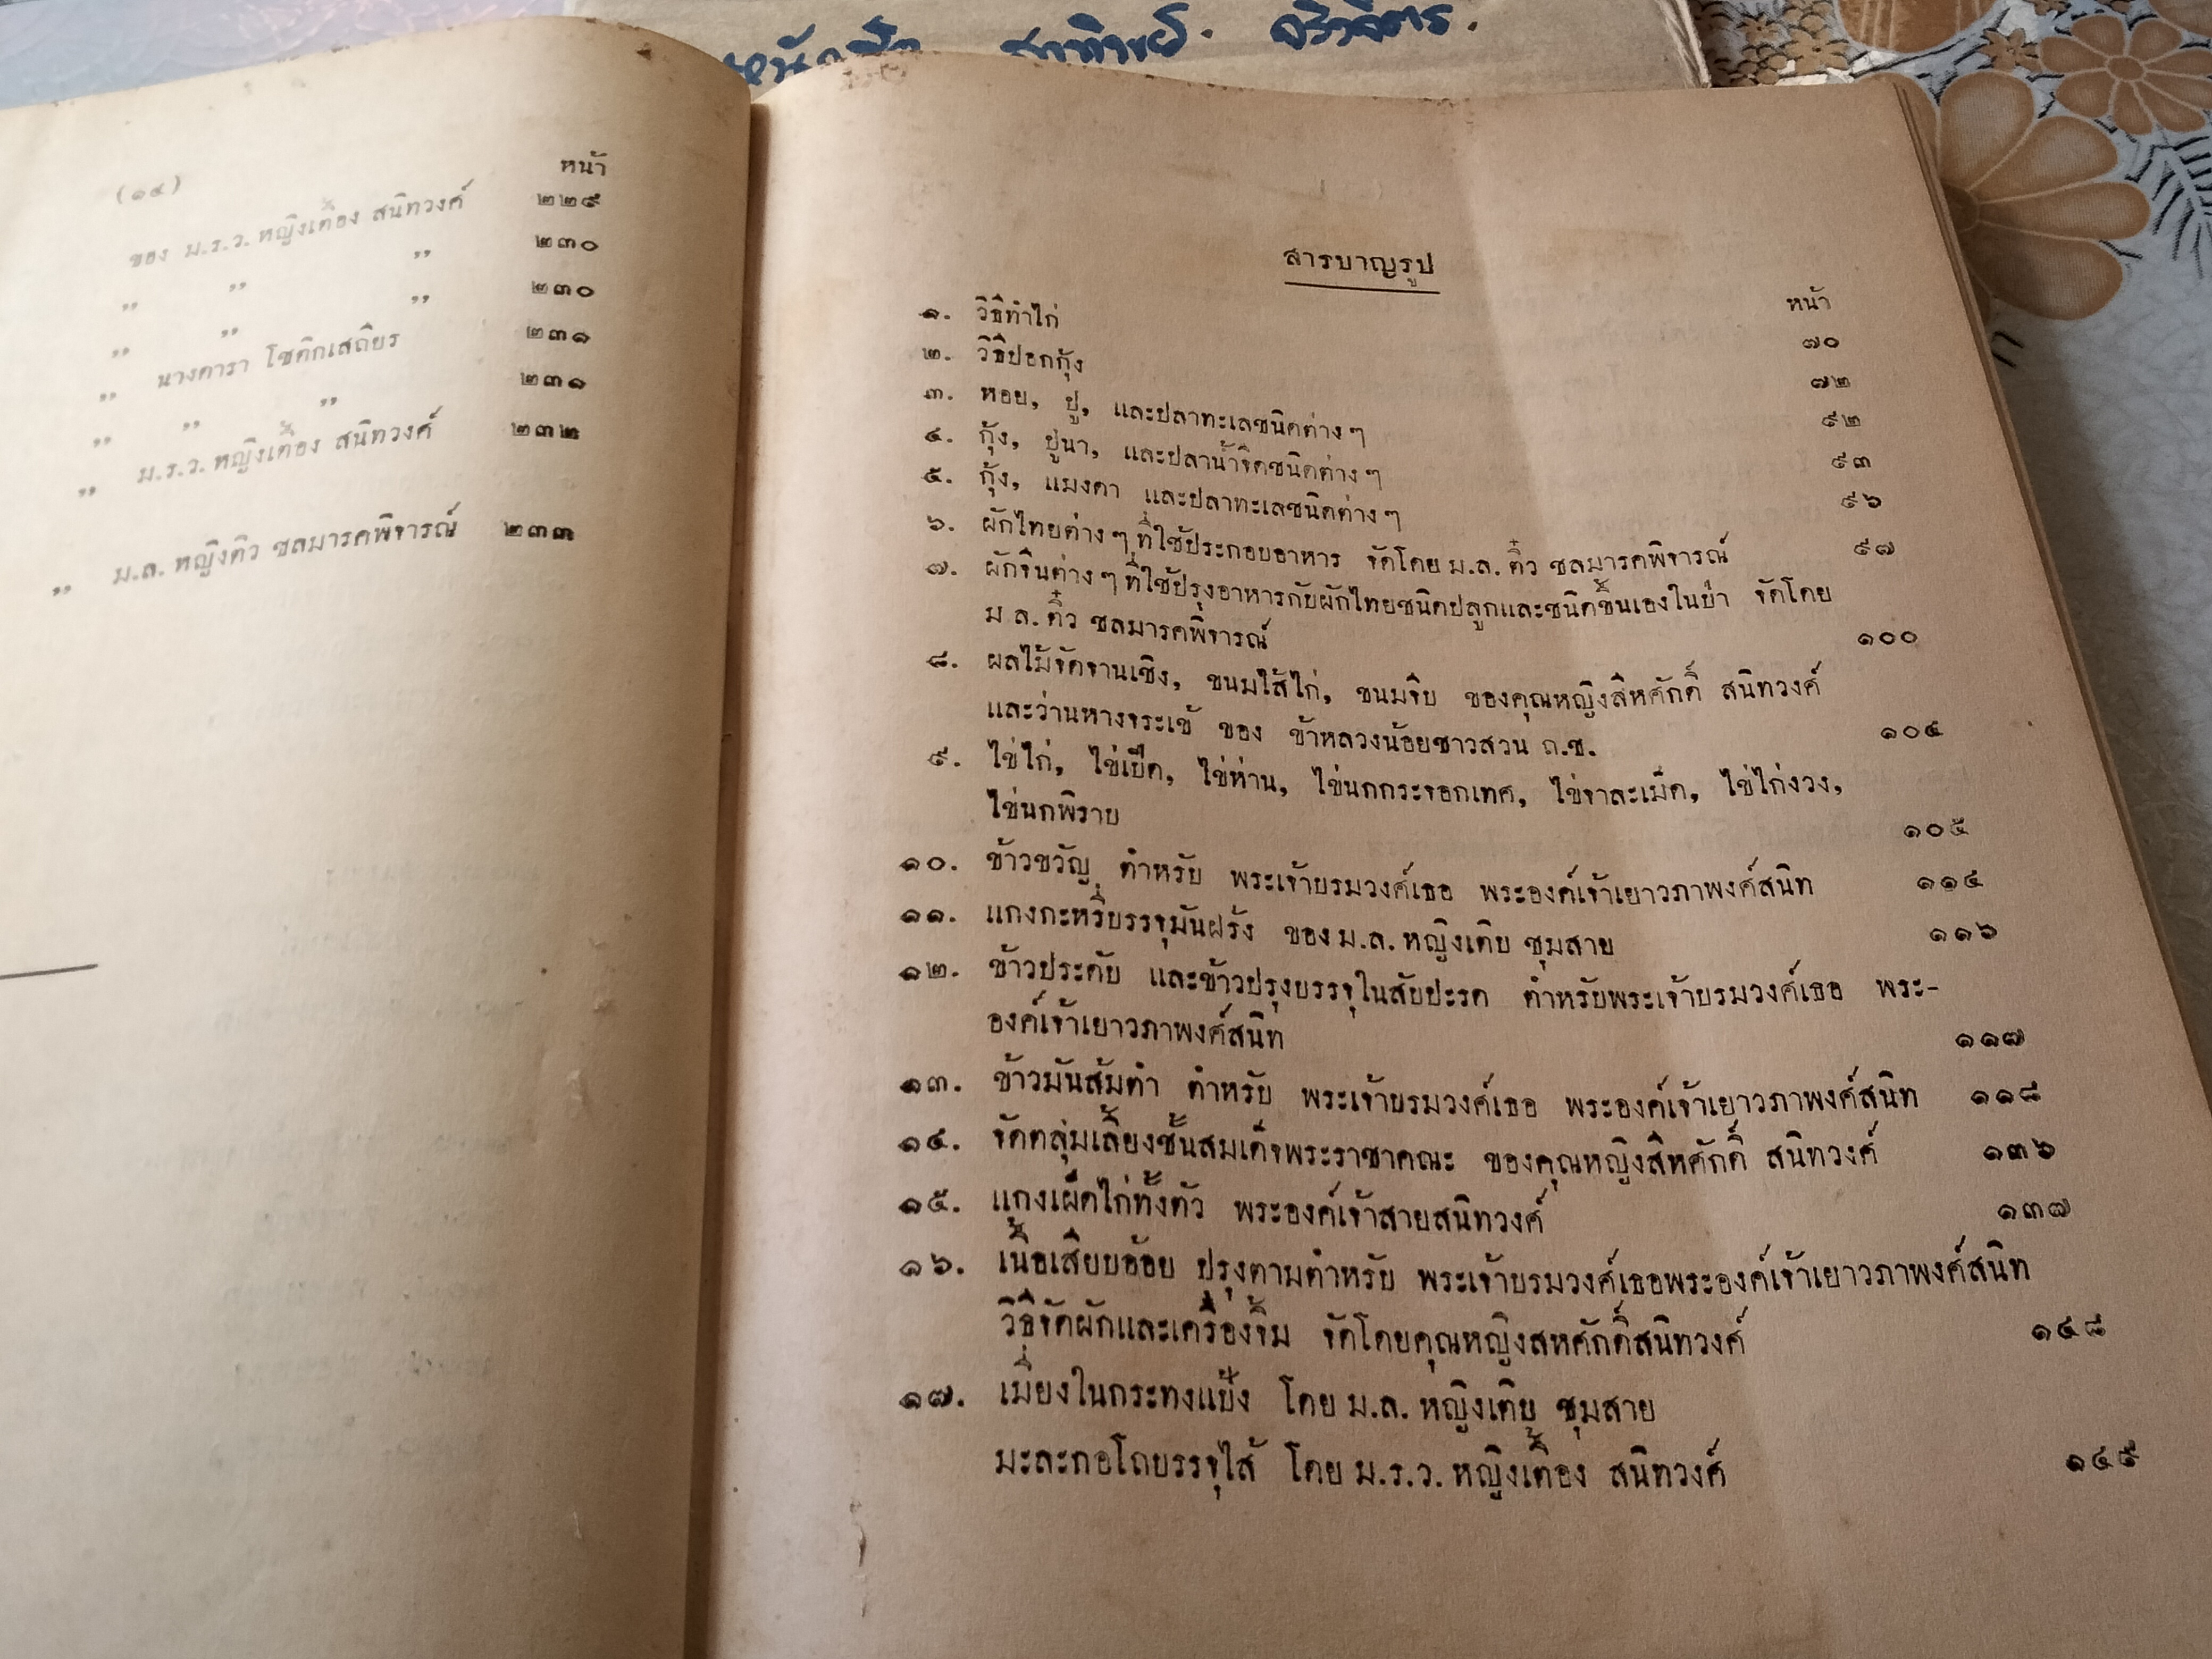 สาทิพย์.
(๑๔)
หน้า
ของ ม.ร.ว. หญิงเตื้อง สนิทวงศ์ ๒๒๙
" " " ๒๓๐
" " " ๒๓๐
" นางดารา โชติกเสถียร ๒๓๑
" " " ๒๓๑
" ม.ร.ว. หญิงเตื้อง สนิทวงศ์ ๒๓๒
" ม.ล. หญิงติ๋ว ชลมารคพิจารณ์ ๒๓๓
สารบาญรูป
หน้า
๑. วิธีทำไก่ ๗๐
๒. วิธีปอกกุ้ง ๗๒
๓. หอย, ปู, และปลาทะเลชนิดต่างๆ ๙๒
๔. กุ้ง, ปูนา, และปลาน้ำจืดชนิดต่างๆ ๙๓
๕. กุ้ง, แมงดา และปลาทะเลชนิดต่างๆ ๙๖
๖. ผักไทยต่างๆ ที่ใช้ประกอบอาหาร จัดโดย ม.ล. ติ๋ว ชลมารคพิจารณ์ ๙๗
๗. ผักจีนต่างๆ ที่ใช้ปรุงอาหารกับผักไทยชนิดปลูกและชนิดขึ้นเองในป่า จัดโดย
ม ล. ติ๋ว ชลมารคพิจารณ์ ๑๐๐
๘. ผลไม้จัดจานเชิง, ขนมไส้ไก่, ขนมจีบ ของคุณหญิงสีหศักดิ์ สนิทวงศ์
และว่านหางจระเข้ ของ ข้าหลวงน้อยชาวสวน ถ.ช. ๑๐๔
๙. ไข่ไก่, ไข่เป็ด, ไข่ห่าน, ไข่นกกระจอกเทศ, ไข่จาละเม็ด, ไข่ไก่งวง,
ไข่นกพิราบ ๑๐๕
๑๐. ข้าวขวัญ ตำหรับ พระเจ้าบรมวงศ์เธอ พระองค์เจ้าเยาวภาพงศ์สนิท ๑๑๔
๑๑. แกงกะหรี่บรรจุมันฝรั่ง ของ ม.ล. หญิงเติบ ชุมสาย ๑๑๖
๑๒. ข้าวประดับ และข้าวปรุงบรรจุในสับปะรด ตำหรับพระเจ้าบรมวงศ์เธอ พระ-
องค์เจ้าเยาวภาพงศ์สนิท ๑๑๗
๑๓. ข้าวมันส้มตำ ตำหรับ พระเจ้าบรมวงศ์เธอ พระองค์เจ้าเยาวภาพงศ์สนิท ๑๑๘
๑๔. จัดตลุ่มเลี้ยงชั้นสมเด็จพระราชาคณะ ของคุณหญิงสีหศักดิ์ สนิทวงศ์ ๑๓๖
๑๕. แกงเผ็ดไก่ทั้งตัว พระองค์เจ้าสายสนิทวงศ์ ๑๓๗
๑๖. เนื้อเสียบอ้อย ปรุงตามตำหรับ พระเจ้าบรมวงศ์เธอพระองค์เจ้าเยาวภาพงศ์สนิท
วิธีจัดผักและเครื่องจิ้ม จัดโดยคุณหญิงสหศักดิ์สนิทวงศ์ ๑๔๘
๑๗. เมี่ยงในกระทงแป้ง โดย ม.ล. หญิงเติบ ชุมสาย
มะละกอโถบรรจุไส้ โดย ม.ร.ว. หญิงเตื้อง สนิทวงศ์ ๑๔๙